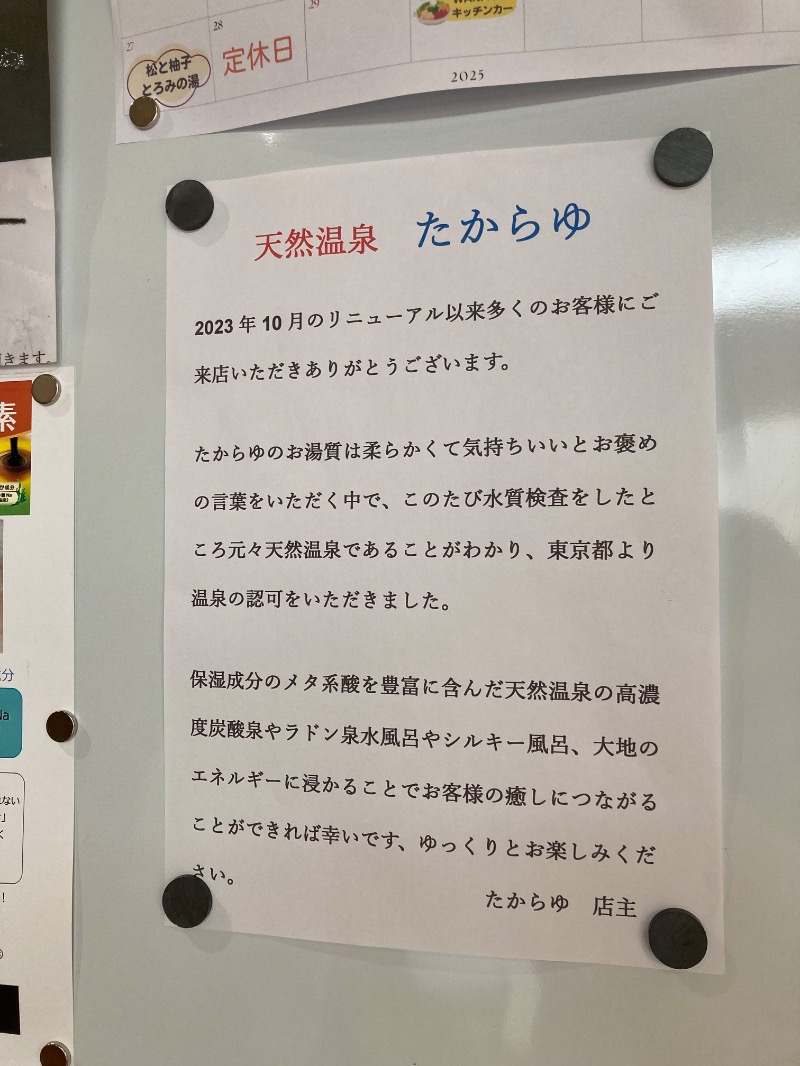 29
WAN
キッチンカー
27
28
松と柚子
とろみの湯
定休日
2025
きます。
素
天然温泉 たからゆ
2023年10月のリニューアル以来多くのお客様にご
来店いただきありがとうございます。
たからゆのお湯質は柔らかくて気持ちいいとお褒め
の言葉をいただく中で、このたび水質検査をしたと
ころ元々天然温泉であることがわかり、東京都より
温泉の認可をいただきました。
保湿成分のメタ系酸を豊富に含んだ天然温泉の高濃
度炭酸泉やラドン泉水風呂やシルキー風呂、大地の
エネルギーに浸かることでお客様の癒しにつながる
ことができれば幸いです、ゆっくりとお楽しみくだ
さい。
たからゆ 店主
分
Na
ない
」
く
！